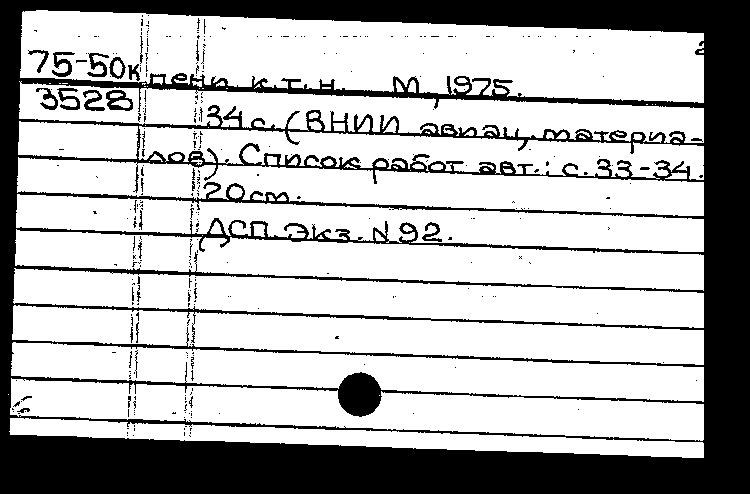 2
75-50к пени к.т.н. М., 1975.
3528
34 с. (ВНИИ авиац. материа-
лов). Список работ авт.: с. 33-34.
20 см.
ДСП. Экз. N 92.